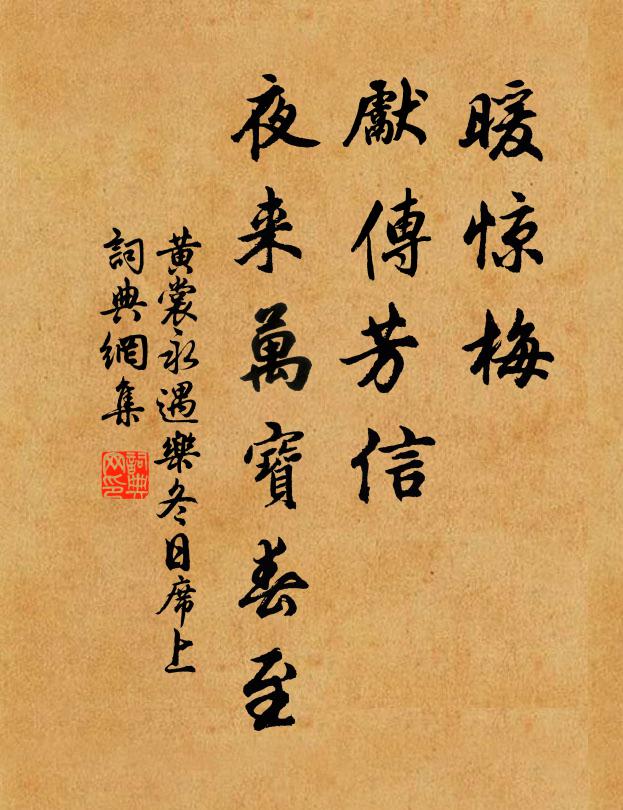 暖惊梅
獻傳芳信
夜来萬寶春至
黄裳永遇樂冬日席上
詞典網集
詞典网印